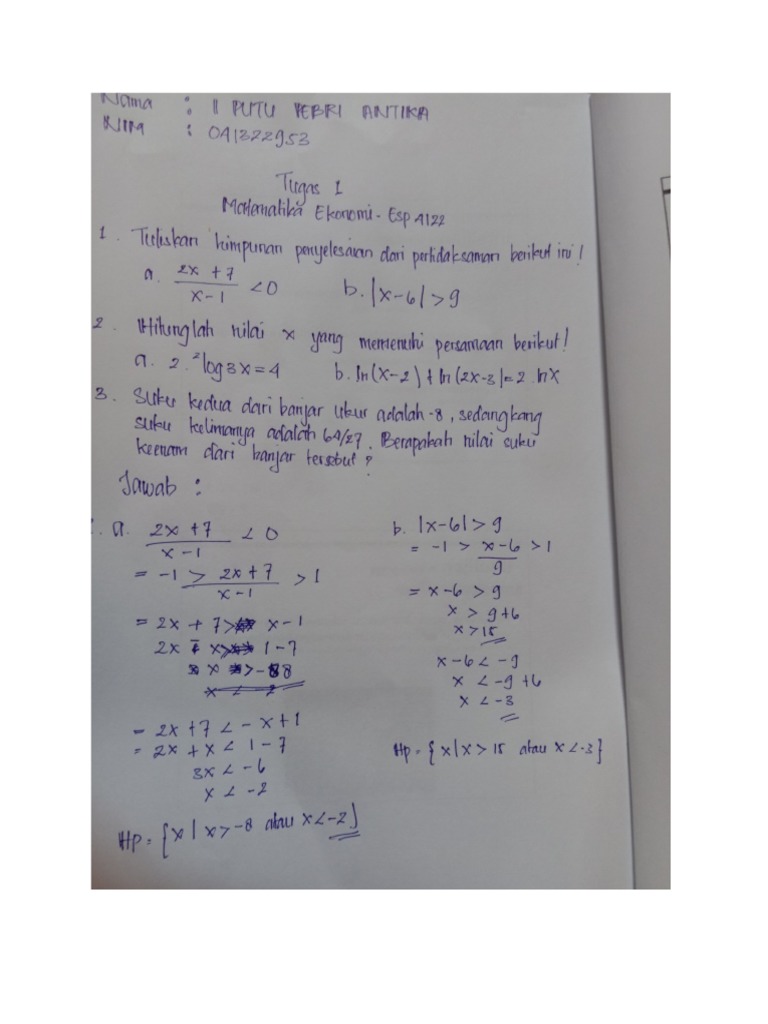 Nama : II PUTU PEBRI ANTIKA
NIM : 041322953
Tugas 1
Matematika Ekonomi - Esp 4122
1. Tuliskan himpunan penyelesaian dari pertidaksamaan berikut ini!
a. (2x + 7)/(x - 1) < 0 b. |x-6| > 9
2. Hitunglah nilai x yang memenuhi persamaan berikut!
a. 2. ²log 3x = 4 b. ln(x-2) + ln(2x-3) = 2. lnx
3. Suku kedua dari banjar ukur adalah -8, sedangkang
suku kelimanya adalah 64/27. Berapakah nilai suku
keenam dari banjar tersebut?
Jawab :
a. (2x + 7)/(x - 1) < 0
= -1 > (2x + 7)/(x - 1) > 1
= 2x + 7 > x - 1
2x - x > 1 - 7
x > -8
= 2x + 7 < - x + 1
= 2x + x < 1 - 7
3x < -6
x < -2
Hp = {x | x > -8 atau x < -2}
b. |x-6| > 9
= -1 > (x-6)/9 > 1
= x-6 > 9
x > 9+6
x > 15
x-6 < -9
x < -9 +6
x < -3
Hp = {x | x > 15 atau x < -3}